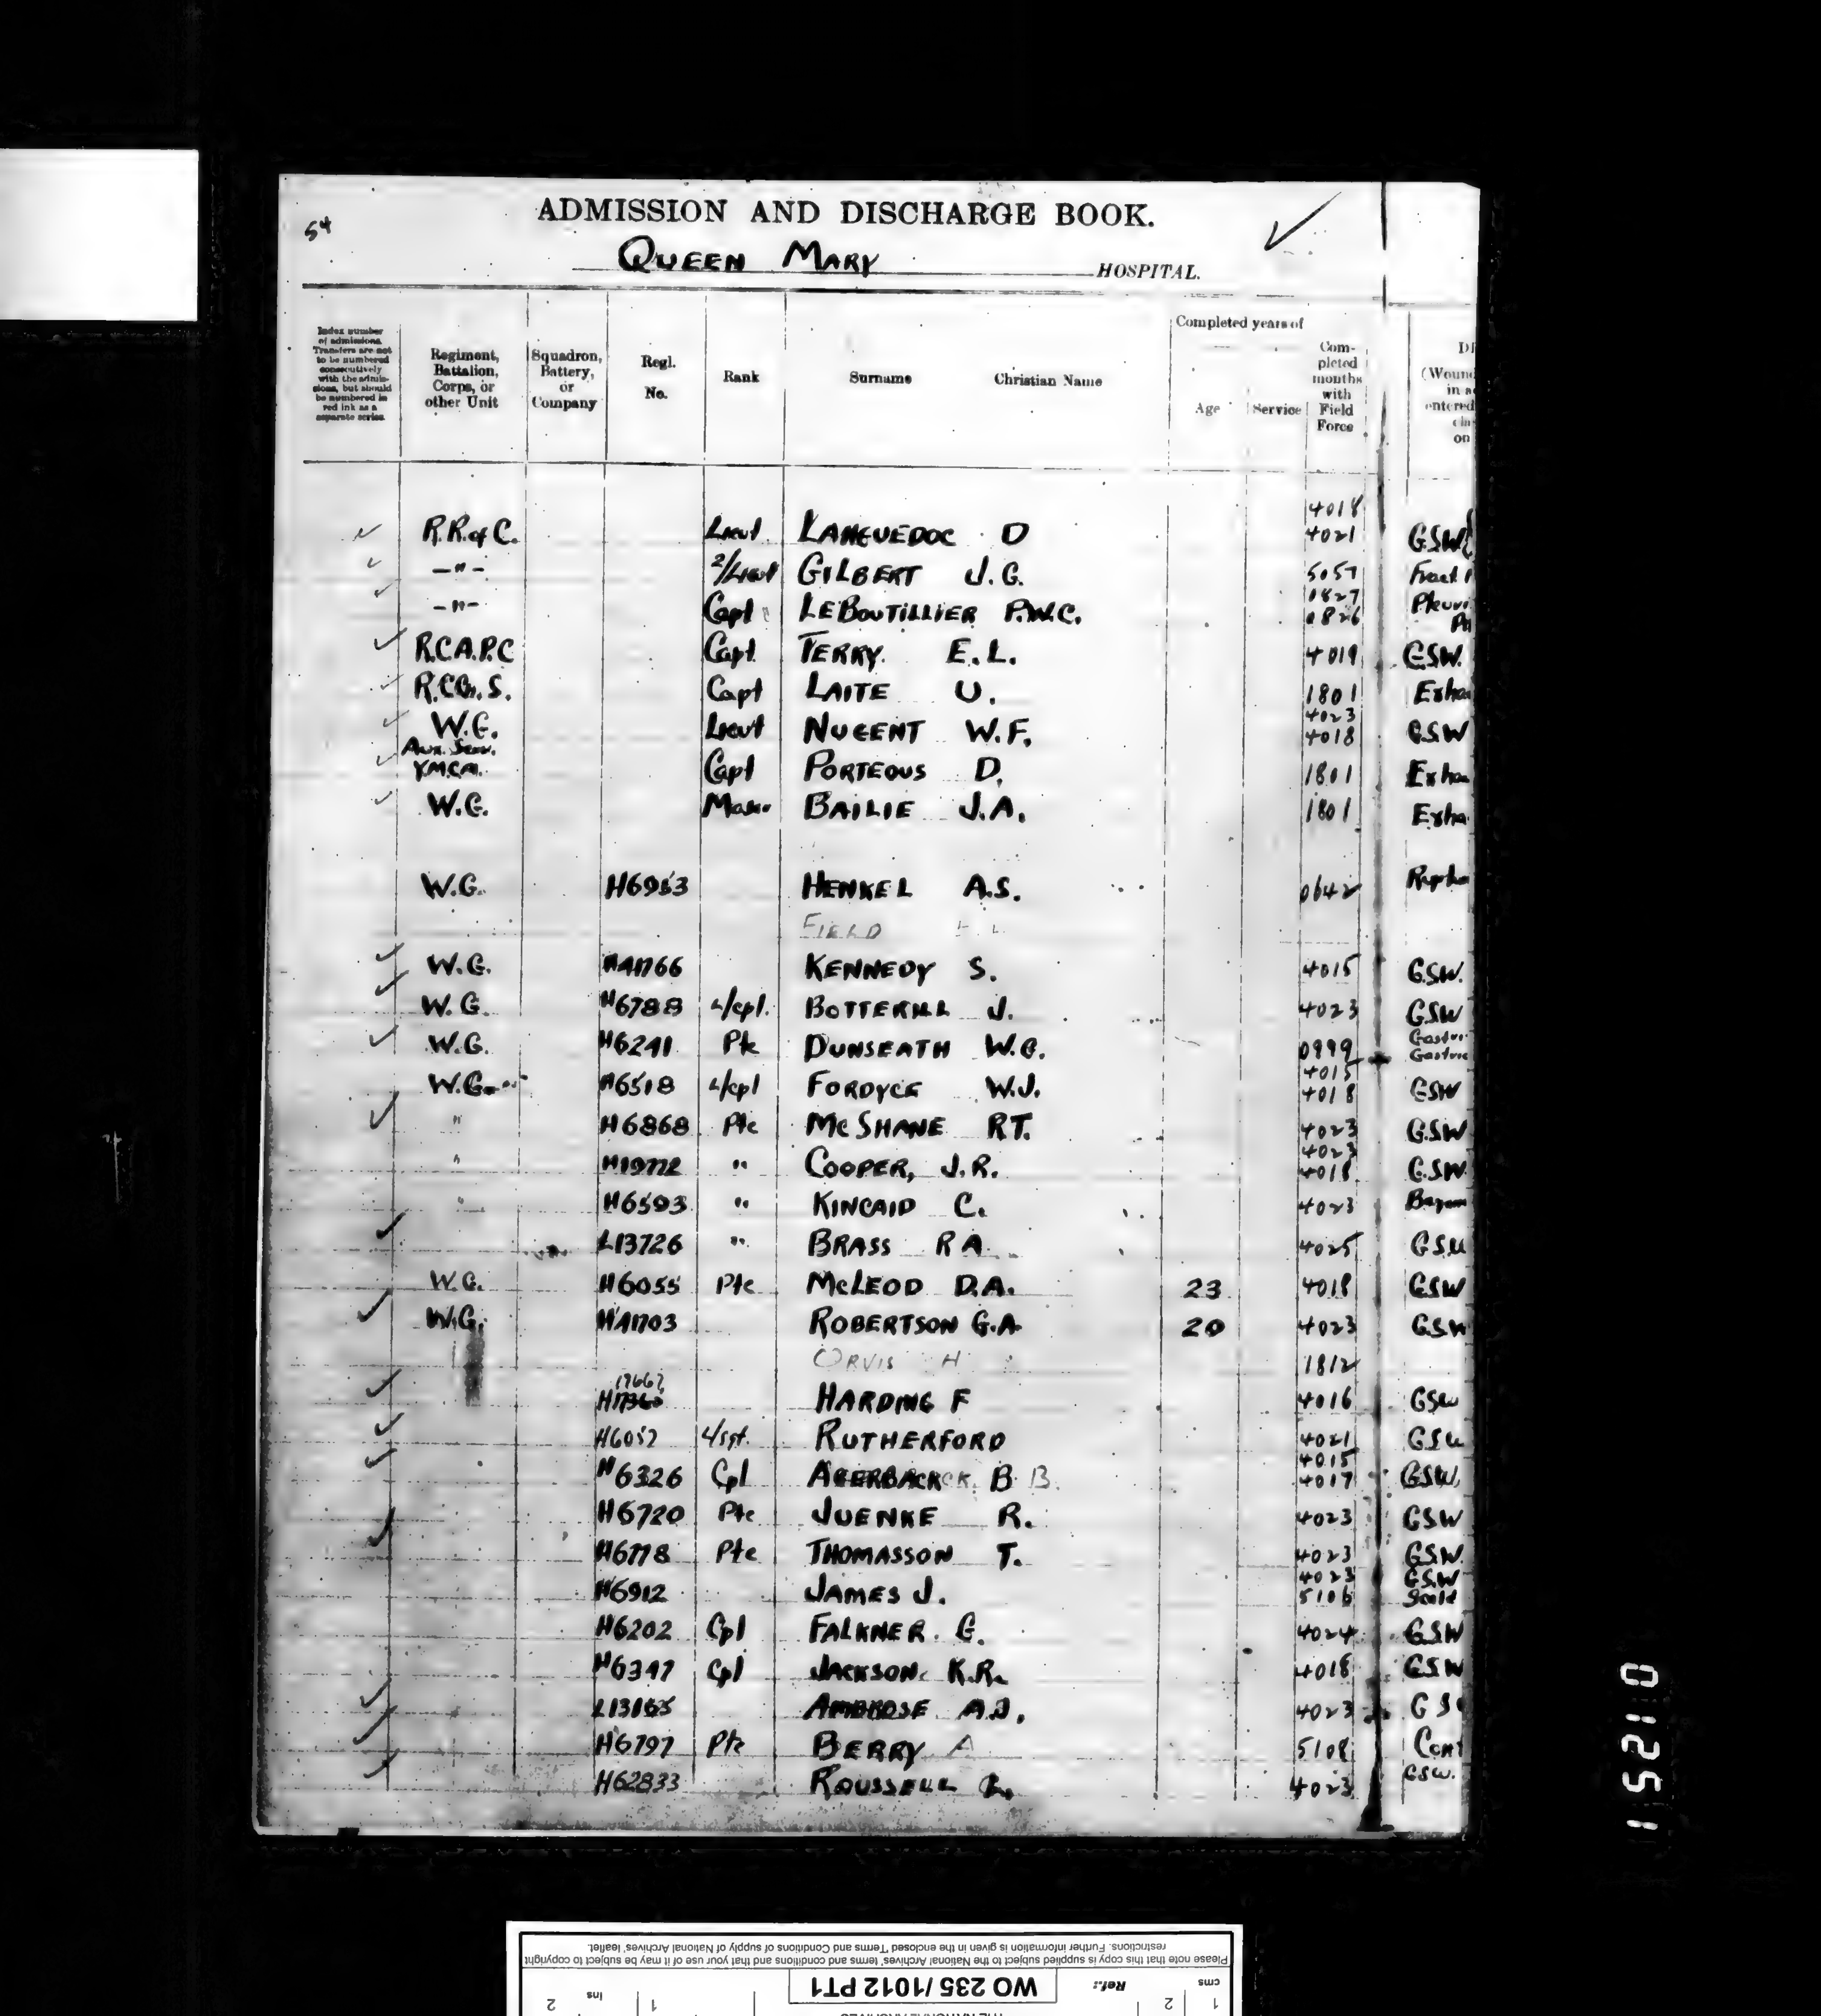 54
ADMISSION AND DISCHARGE BOOK.
QUEEN MARY HOSPITAL.
Index number of admissions. Transfers are not to be numbered consecutively with the admissions, but should be numbered in red ink as a separate series.
Regiment, Battalion, Corps, or other Unit
Squadron, Battery, or Company
Regl. No.
Rank
Surname Christian Name
Completed years of
Age Service
Completed months with Field Force
(Wound
entered
on
4018
R.R. of C. Lieut. LANGUEDOC D 4021 GSW
—"— 2/Lieut GILBERT J.G. 5057 Fract
0827
—"— Capt LEBOUTILLIER P.W.C. 0826 Pleuri
R.C.A.P.C Capt. TERRY. E.L. 4019 GSW.
R.C.Ch.S. Capt LAITE U. 1801 Exha
4023
W.G. Lieut NUGENT W.F. 4018 GSW
Aux. Serv.
Y.M.C.A. Capt PORTEOUS D. 1801 Exha
W.G. BAILIE J.A. 1801 Exha
W.G. H6953 HENKEL A.S. 0642
FIELD
W.G. H41766 KENNEDY S. 4015 G.S.W.
W.G. H6788 L/cpl. BOTTERILL J. 4023 GSW
W.G. H6241 Pte DUNSEATH W.G. 0999 Gastric
4015
W.G. H6518 L/cpl FORDYCE W.J. 4018 GSW
" H6868 Pte McSHANE R.T. 4023 G.S.W
4023
" H19772 " COOPER, J.R. 4018 G.S.W.
" H6593 " KINCAID C. 4023
L13726 " BRASS R A 4025 GSW
W.G. H6055 Pte McLEOD D.A. 23 4018 GSW
W.G. H41703 ROBERTSON G.A. 20 4023 GSW
ORVIS H 1812
17667
H17360 HARDING F 4016 GSW
H6057 L/sgt. RUTHERFORD 4021 GSW
4015
H6326 Cpl AGERBACK B B. 4017 GSW
H6720 Pte JUENKE R. 4023 GSW
H6778 Pte THOMASSON T. 4023 GSW.
4023 GSW
H6912 JAMES J. 5106 Scald
H6202 Cpl FALKNER G. 4024 GSW
H6347 Cpl JACKSON K.R. 4018 GSW
L13165 AMBROSE A.J. 4023 GS
H6797 Pte BERRY A 5108 Cont
H62833 ROUSSELL 4023 GSW.
0 1 2 5 1 1
Please note that this copy is supplied subject to the National Archives' terms and conditions and that your use of it may be subject to copyright
restrictions. Further information is given in the enclosed 'Terms and Conditions of supply of National Archives' leaflet.
cms 1 2 Ref.: WO 235/1012 PT1
ins 1 2